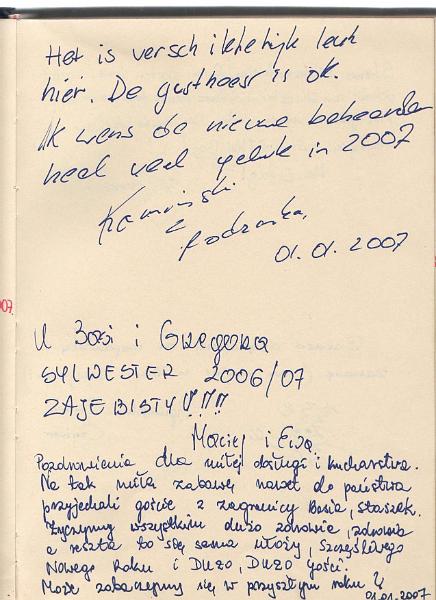 Het is verschikkelijk leuk
hier. De gastheer is ok.
Ik wens de nieuwe beheerder
heel veel geluk in 2007
Kamiński
z rodzinką,
01.01.2007
007
U Bozi i Grzegorza
SYLWESTER 2006/07
ZAJEBISTY!!!!
Maciej i Ewa
Pozdrowienia dla miłej obsługi i kucharstwa.
Na tak miłą zabawę nawet do państwa
przyjechali goście z zagranicy Basia, Staszek.
Życzymy wszystkim dużo zdrowia, zdrowia
a reszta to się sama ułoży, Szczęśliwego
Nowego Roku i Dużo, Dużo Gości.
Może zobaczymy się w przyszłym roku
01.01.2007